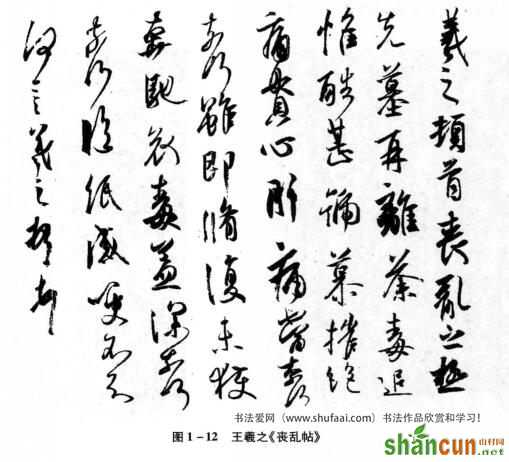 羲之頓首喪亂之極
先墓再離荼毒追
惟酷甚號慕摧絕
痛貫心肝痛當奈何
奈何雖即脩復未獲
奔馳哀毒益深奈何
奈何臨紙感哽不知
何言羲之頓首頓首
书法爱网（www.shufaai.com）书法作品欣赏和学习！
图1－12 王羲之《丧乱帖》
shancun 山村网
.net